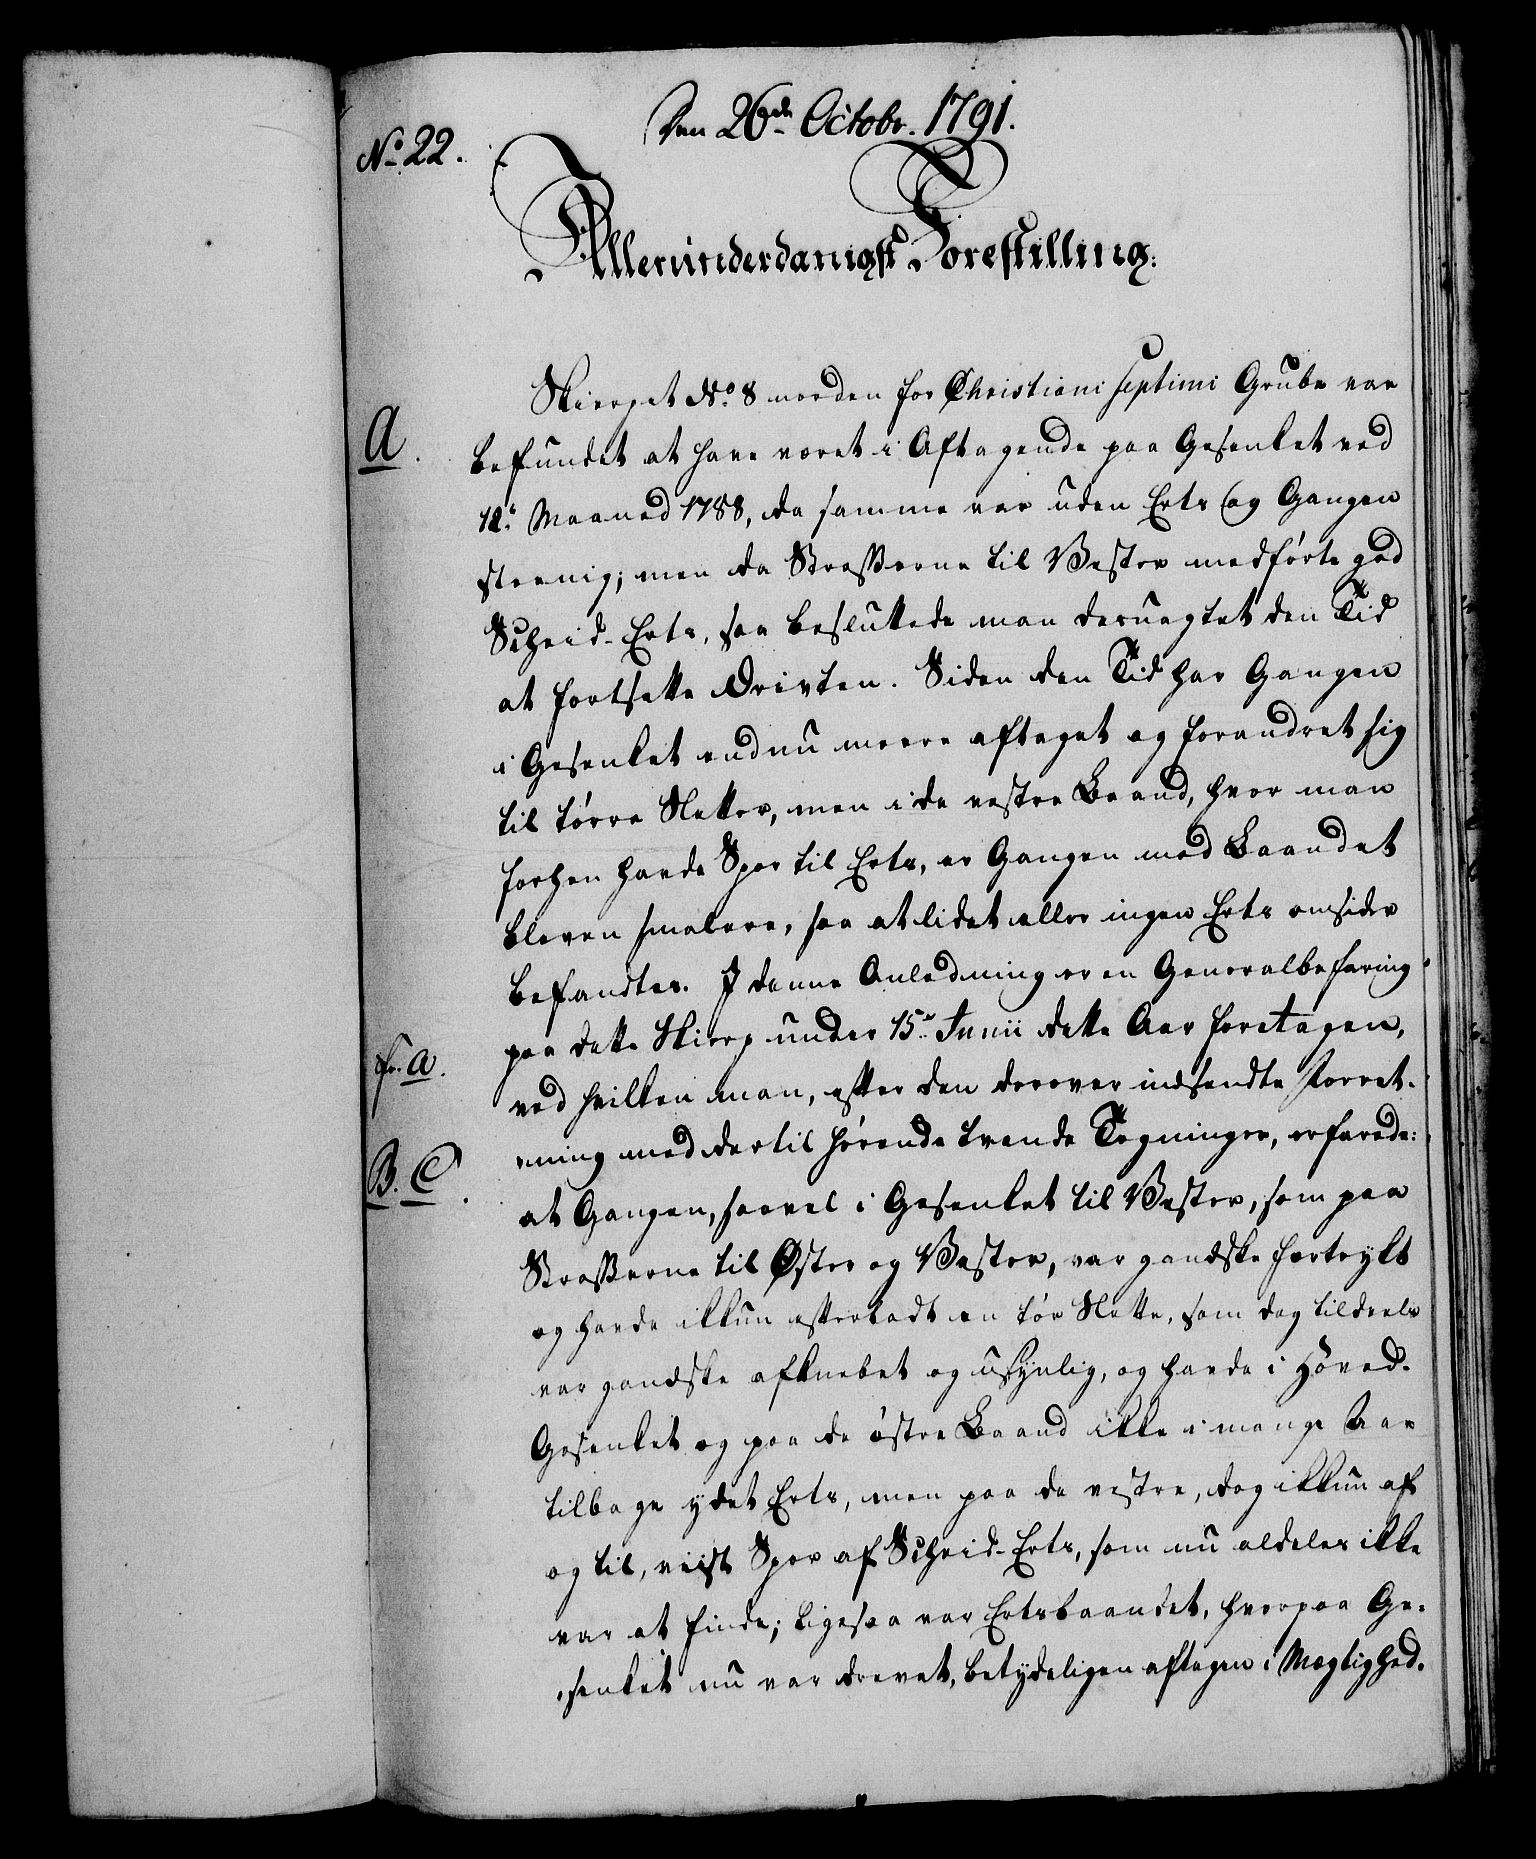 Den 26de Octobr. 1791.
No 22.
Allerunderdanigst Forestilling:
Skierpet No 8 norden for Christiani Septimi Grube var
A.
befundet at have været i Aftagende paa Gesenket ved
12te Maaned 1788, da samme var uden Erts og Gangen
steenig; men da Strosserne til Vester medførte god
Scheid-Erts, saa besluttede man desuagtet den Tid
at fortsette Driften. Siden den Tid har Gangen
i Gesenket endnu meere aftaget og forandret sig
til tørre Sletter, men i de vestre Baand, hvor man
forhen havde Spor til Erts, er Gangen med Baandet
bleven smalere, saa at lidet eller ingen Erts omsider
befandtes. I denne Anledning er en Generalbefaring
paa dette Skierp under 15de Junii dette Aar foretagen,
fr. a.
ved hvilken man, efter den derover indsendte Forret-
ning med dertil hørende tvende Tegninger, erfarede:
B. C.
at Gangen, saavel i Gesenket til Vester, som paa
Strosserne til Øster og Vester, var gandske fortrykt
og havde ikkun efterladt en tør Slette, som dog tildeels
var gandske afknebet og usynlig, og havde i Hoved-
Gesenket og paa de østre Baand ikke i mange Aar
tilbage ydet Erts, men paa de vestre, dog ikkun af
og til, viist Spor af Scheid-Erts, som nu aldeles ikke
var at finde; ligesaa var Ertsbaandet, hvorpaa Ge-
senket nu var drevet, betydeligen aftagen i Mægtighed.